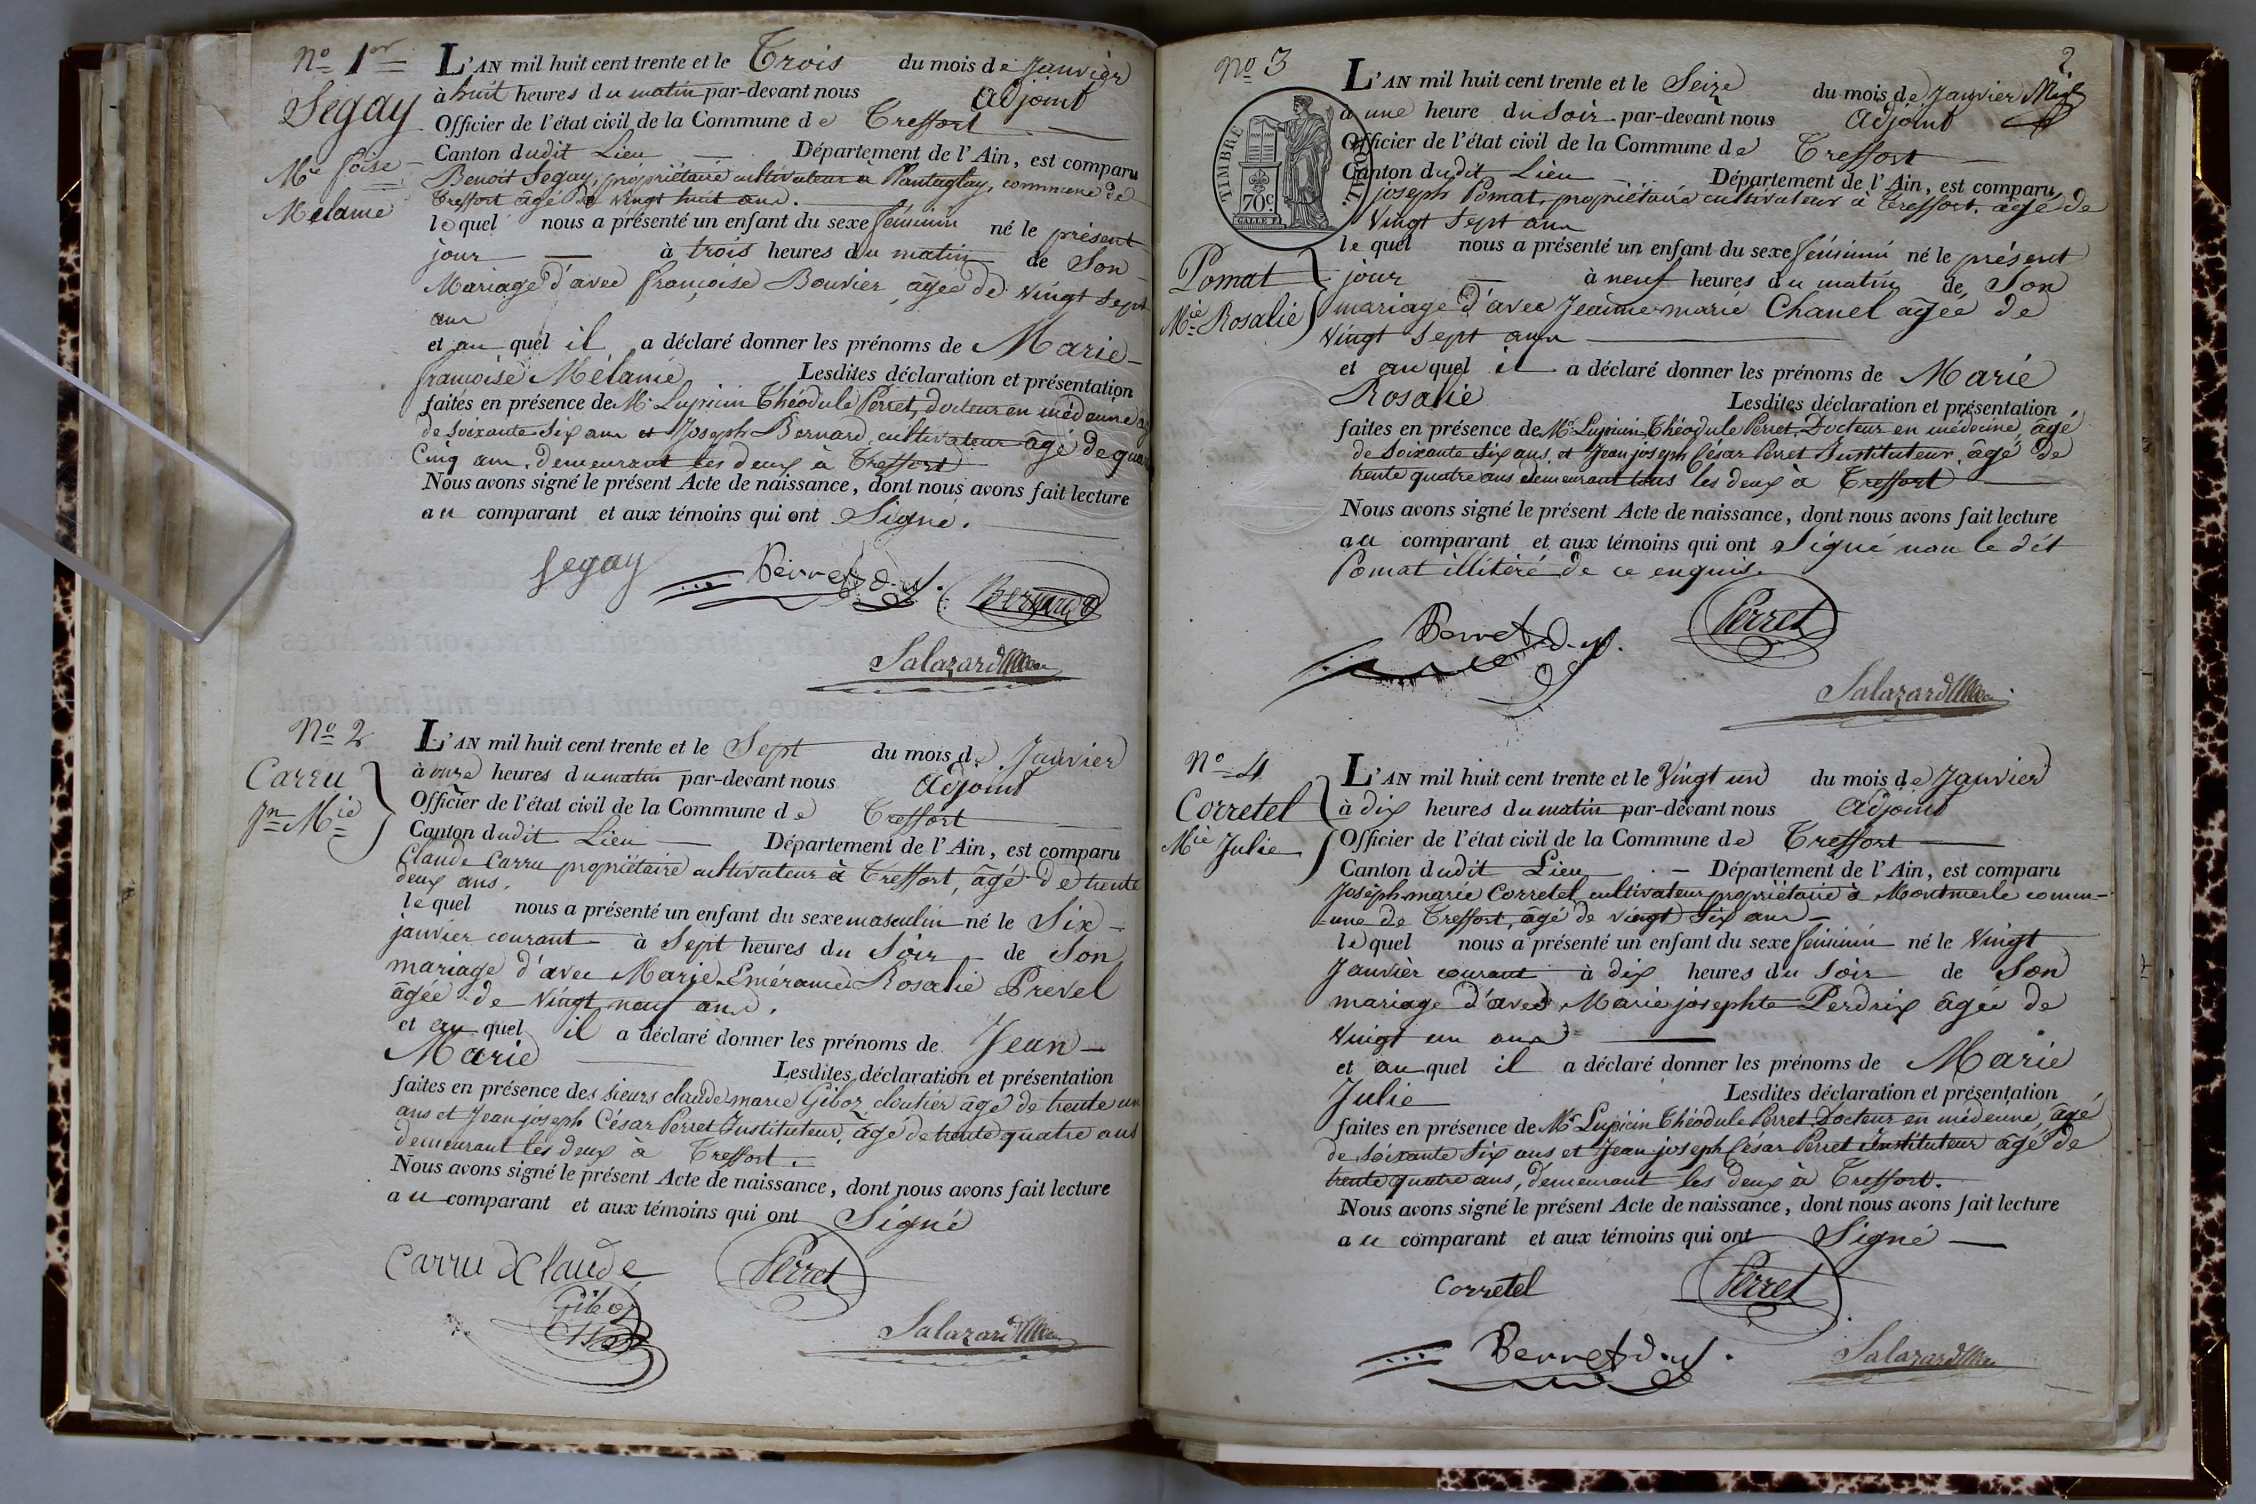 No 1er
Segay
Mie foise
Mélanie
L'AN mil huit cent trente et le Trois du mois de Janvier
à huit heures du matin par-devant nous Adjoint
Officier de l'état civil de la Commune de Treffort
Canton dudit Lieu Département de l'Ain, est comparu
Benoit Segay, propriétaire cultivateur à Plantaglay, commune de
Treffort âgé de vingt huit ans.
lequel nous a présenté un enfant du sexe féminin né le présent
jour à trois heures du matin de Son
Mariage d'avec françoise Bouvier âgée de vingt Sept
ans
et au quel il a déclaré donner les prénoms de Marie
françoise Mélanie Lesdites déclaration et présentation
faites en présence de Mr Lupicin Théodule Perret, docteur en médecine âg
de Soixante Six ans et Joseph Bernard, cultivateur âgé de quar
Cinq ans, demeurant les deux à Treffort
Nous avons signé le présent Acte de naissance, dont nous avons fait lecture
au comparant et aux témoins qui ont Signé.
Segay Perret d.m. Bernard
Salazard
No 2
Carru
Jn Mie
L'AN mil huit cent trente et le Sept du mois de Janvier
à onze heures du matin par-devant nous Adjoint
Officier de l'état civil de la Commune de Treffort
Canton dudit Lieu Département de l'Ain, est comparu
Claude Carru propriétaire cultivateur à Treffort, âgé de trente
deux ans.
lequel nous a présenté un enfant du sexe masculin né le Six
janvier courant à Sept heures du Soir de Son
mariage d'avec Marie Emérame Rosalie Prevel
âgée de Vingt neuf ans.
et au quel il a déclaré donner les prénoms de Jean
Marie Lesdites déclaration et présentation
faites en présence des sieurs claude marie Giboz cloutier âgé de trente un
ans et Jean joseph César Perret Instituteur, âgé de trente quatre ans
demeurant les deux à Treffort.
Nous avons signé le présent Acte de naissance, dont nous avons fait lecture
au comparant et aux témoins qui ont Signé
Carru Claude Perret
Giboz
Salazard
No 3
2
L'AN mil huit cent trente et le Seize du mois de Janvier
à une heure du Soir par-devant nous Adjoint
Officier de l'état civil de la Commune de Treffort
Canton dudit Lieu Département de l'Ain, est comparu
TIMBRE ROYAL.
70c
joseph Pomat, propriétaire cultivateur à Treffort. âgé de
Vingt Sept ans
lequel nous a présenté un enfant du sexe féminin né le présent
Pomat
Mie Rosalie
jour à neuf heures du matin de Son
mariage d'avec Jeanne marie Chanel âgée de
Vingt Sept ans
et au quel il a déclaré donner les prénoms de Marie
Rosalie Lesdites déclaration et présentation
faites en présence de Mr Lupicin Théodule Perret Docteur en médecine, âgé
de Soixante Six ans et Jean joseph César Perret Instituteur, âgé de
trente quatre ans demeurant tous les deux à Treffort
Nous avons signé le présent Acte de naissance, dont nous avons fait lecture
au comparant et aux témoins qui ont Signé non le dét
Pomat illitéré de ce enquis.
Perret d.m. Perret
Salazard
No 4
Corretel
Mie Julie
L'AN mil huit cent trente et le Vingt un du mois de Janvier
à dix heures du matin par-devant nous Adjoint
Officier de l'état civil de la Commune de Treffort
Canton dudit Lieu Département de l'Ain, est comparu
Joseph marie Corretel cultivateur propriétaire à Montmerle comm-
-une de Treffort, âgé de vingt Six ans
lequel nous a présenté un enfant du sexe féminin né le Vingt
Janvier courant à dix heures du Soir de Son
mariage d'avec Marie josephte Perdrix âgée de
Vingt un ans
et au quel il a déclaré donner les prénoms de Marie
Julie Lesdites déclaration et présentation
faites en présence de Mr Lupicin Théodule Perret Docteur en médecine, âgé
de Soixante Six ans et Jean joseph César Perret Instituteur âgé de
trente quatre ans, demeurant les deux à Treffort.
Nous avons signé le présent Acte de naissance, dont nous avons fait lecture
au comparant et aux témoins qui ont Signé
Corretel Perret
Perret d.m. Salazard